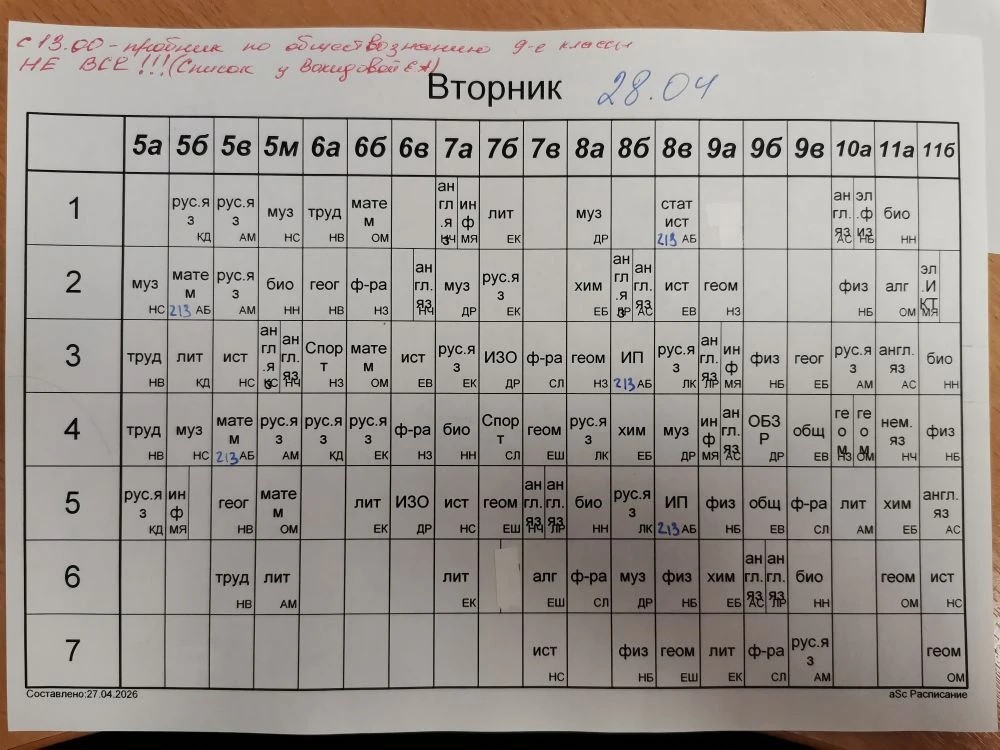 с 13.00 - пробник по обществознанию 9-е классы
НЕ ВСЕ!!! (Список у Вохидовой ЕА)
Вторник 28.04
5а 5б 5в 5м 6а 6б 6в 7а 7б 7в 8а 8б 8в 9а 9б 9в 10а 11а 11б
1 рус.яз КД рус.яз АМ муз НС труд НВ матем ОМ англ.яз НЧ инф МЯ лит ЕК муз ДР статист 213 АБ англ.яз АС эл.физ НБ био НН
2 муз НС матем 213 АБ рус.яз АМ био НН геог НВ ф-ра НЗ англ.яз НЧ муз ДР рус.яз ЕК хим ЕБ англ.яз ЛР англ.яз АС ист ЕВ геом НЗ физ НБ алг ОМ эл.ИКТ МЯ
3 труд НВ лит КД ист НС англ.яз КС англ.яз НЧ Спорт НЗ матем ОМ ист ЕВ рус.яз ЕК ИЗО ДР ф-ра СЛ геом НЗ ИП 213 АБ рус.яз ЛК англ.яз ЛР инф МЯ физ НБ геог ЕБ рус.яз АМ англ.яз АС био НН
4 труд НВ муз НС матем 213 АБ рус.яз АМ рус.яз КД рус.яз ЕК ф-ра НЗ био НН Спорт СЛ геом ЕШ рус.яз ЛК хим ЕБ муз ДР инф МЯ англ.яз АС ОБЗР ДР общ ЕВ геом НЗ геом ОМ нем.яз НЧ физ НБ
5 рус.яз КД инф МЯ геог НВ матем ОМ лит ЕК ИЗО ДР ист НС геом ЕШ англ.яз НЧ англ.яз ЛР био НН рус.яз ЛК ИП 213 АБ физ НБ общ ЕВ ф-ра СЛ лит АМ хим ЕБ англ.яз АС
6 труд НВ лит АМ лит ЕК алг ЕШ ф-ра СЛ муз ДР физ НБ хим ЕБ англ.яз АС англ.яз ЛР био НН геом ОМ ист НС
7 ист НС физ НБ геом ЕШ лит ЕК ф-ра СЛ рус.яз АМ геом ОМ
Составлено:27.04.2026 aSc Расписание